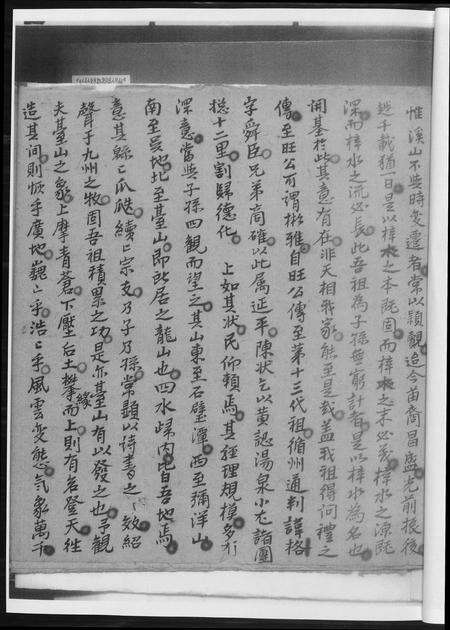 惟溪山不與時变遷者常以穎觀迨今苗裔昌盛光前振後
越千載猶一日是以梓木之本既固而梓木之末必茂梓水之源既
深而梓水之流必長此吾祖為子孫無窮計者是以梓水為名也
開基於此其意有在非天相我家能至是哉盖我祖得问禮之
傳至旺公可谓彬雅自旺公傳至苐十三代祖循州通判諱格
字舜臣兄弟商確以此属延平陳狀乞以黄認湯泉小尤諸團
捴十二里割歸德化 上如其狀民仰賴焉其經理規模多有
深意當與子孫四観而望之其山東至石壁潭西至彌洋山
南至吴地北至臺山即所居之龍山也四水歸内皆吾地焉
意其緜〻瓜瓞續〻宗支乃子乃孫常顯以诗書之〻效紹
聲于九州之牧固吾祖積累之功是亦臺山有以發之也予観
夫臺山之象上摩青蒼下壓后土攀緣而上則有名登天徃
造其间則恢乎廣地巍〻乎浩〻乎風雲变態气象萬千